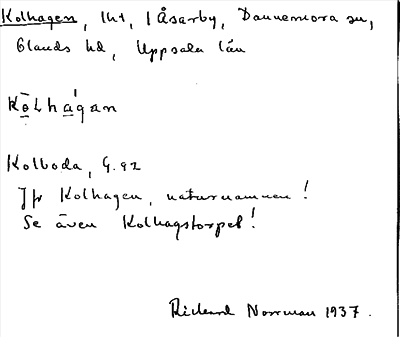 Kolhagen, lht, i Åsarby, Dannemora sn,
Olands hd, Uppsala län
Kōlhágan
Kolboda, G. 92
Jfr Kolhagen, naturnamnen!
Se även Kolhagstorpet!
Richard Norrman 1937.